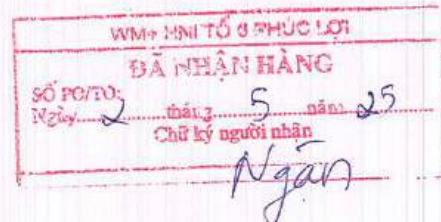 WM+ HNI TỔ 8 PHÚC LỢI
ĐÃ NHẬN HÀNG
SỐ PO/TO:
Ngày 2 tháng 5 năm 25
Chữ ký người nhận
Ngân